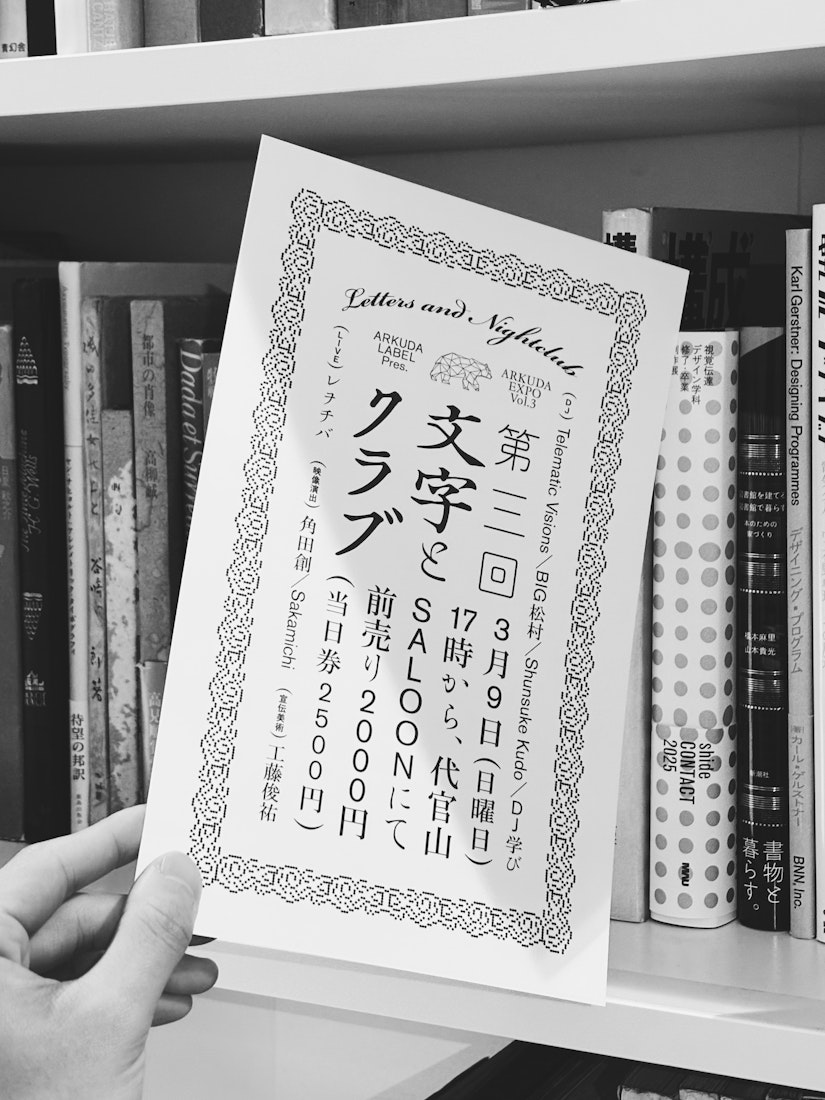 Letters and Nightclub
ARKUDA
LABEL
Pres.
ARKUDA
EXPO
Vol.3
(DJ) Telematic Visions／BIG松村／Shunsuke Kudo／DJ学び
第三回
3月9日(日曜日)
文字と
17時から、代官山
SALOONにて
クラブ
前売り2000円
(当日券2500円)
(LIVE) レヂヂバ
(映像演出) 角田創／Sakamichi
(宣伝美術) 工藤俊祐
青幻舎
都市の肖像
高柳誠
待望の邦訳
構成
視覚伝達
デザイン学科
修了・卒業
制作展
shide
CONTACT
2025
図書館を建てる、
図書館で暮らす
本のための
家づくり
橋本麻里
山本貴光
新潮社
書物と
暮らす。
Karl Gerstner: Designing Programmes
デザイニング・プログラム
カール・ゲルストナー
BNN, Inc.